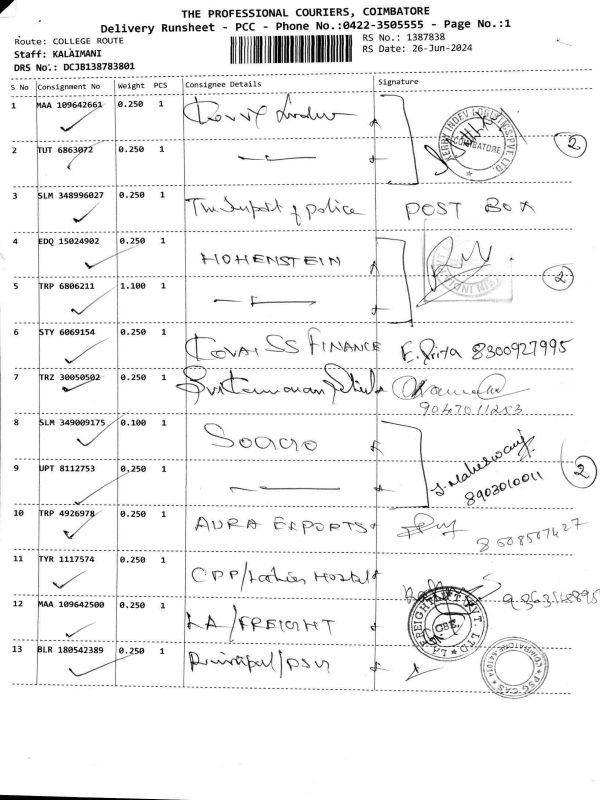 THE PROFESSIONAL COURIERS, COIMBATORE
Delivery Runsheet - PCC - Phone No.:0422-3505555 - Page No.:1
Route: COLLEGE ROUTE
RS No.: 1387838
Staff: KALAIMANI
RS Date: 26-Jun-2024
DRS No.: DCJB138783801
S No Consignment No Weight PCS Consignee Details Signature
1 MAA 109642661 0.250 1
KERRY INDEV LOGISTICS PVT. LTD.
COIMBATORE
2
2 TUT 6863072 0.250 1
3 SLM 348996027 0.250 1 of police POST BOX
4 EDQ 15024902 0.250 1 HOHENSTEIN
2
5 TRP 6806211 1.100 1
6 STY 6069154 0.250 1 KOVAI SS FINANCE E. Priya 8300927995
7 TRZ 30050502 0.250 1
9047011253
8 SLM 349009175 0.100 1 Soacro
J. Maheswari
8903010011
2
9 UPT 8112753 0.250 1
10 TRP 4926978 0.250 1 AURA EXPORTS
8508507427
11 TYR 1117574 0.250 1 Hostel
12 MAA 109642500 0.250 1 LA/FREIGHT
LA FREIGHT PVT. LTD
CBE
13 BLR 180542389 0.250 1 Principal/PSG
PSG CAS